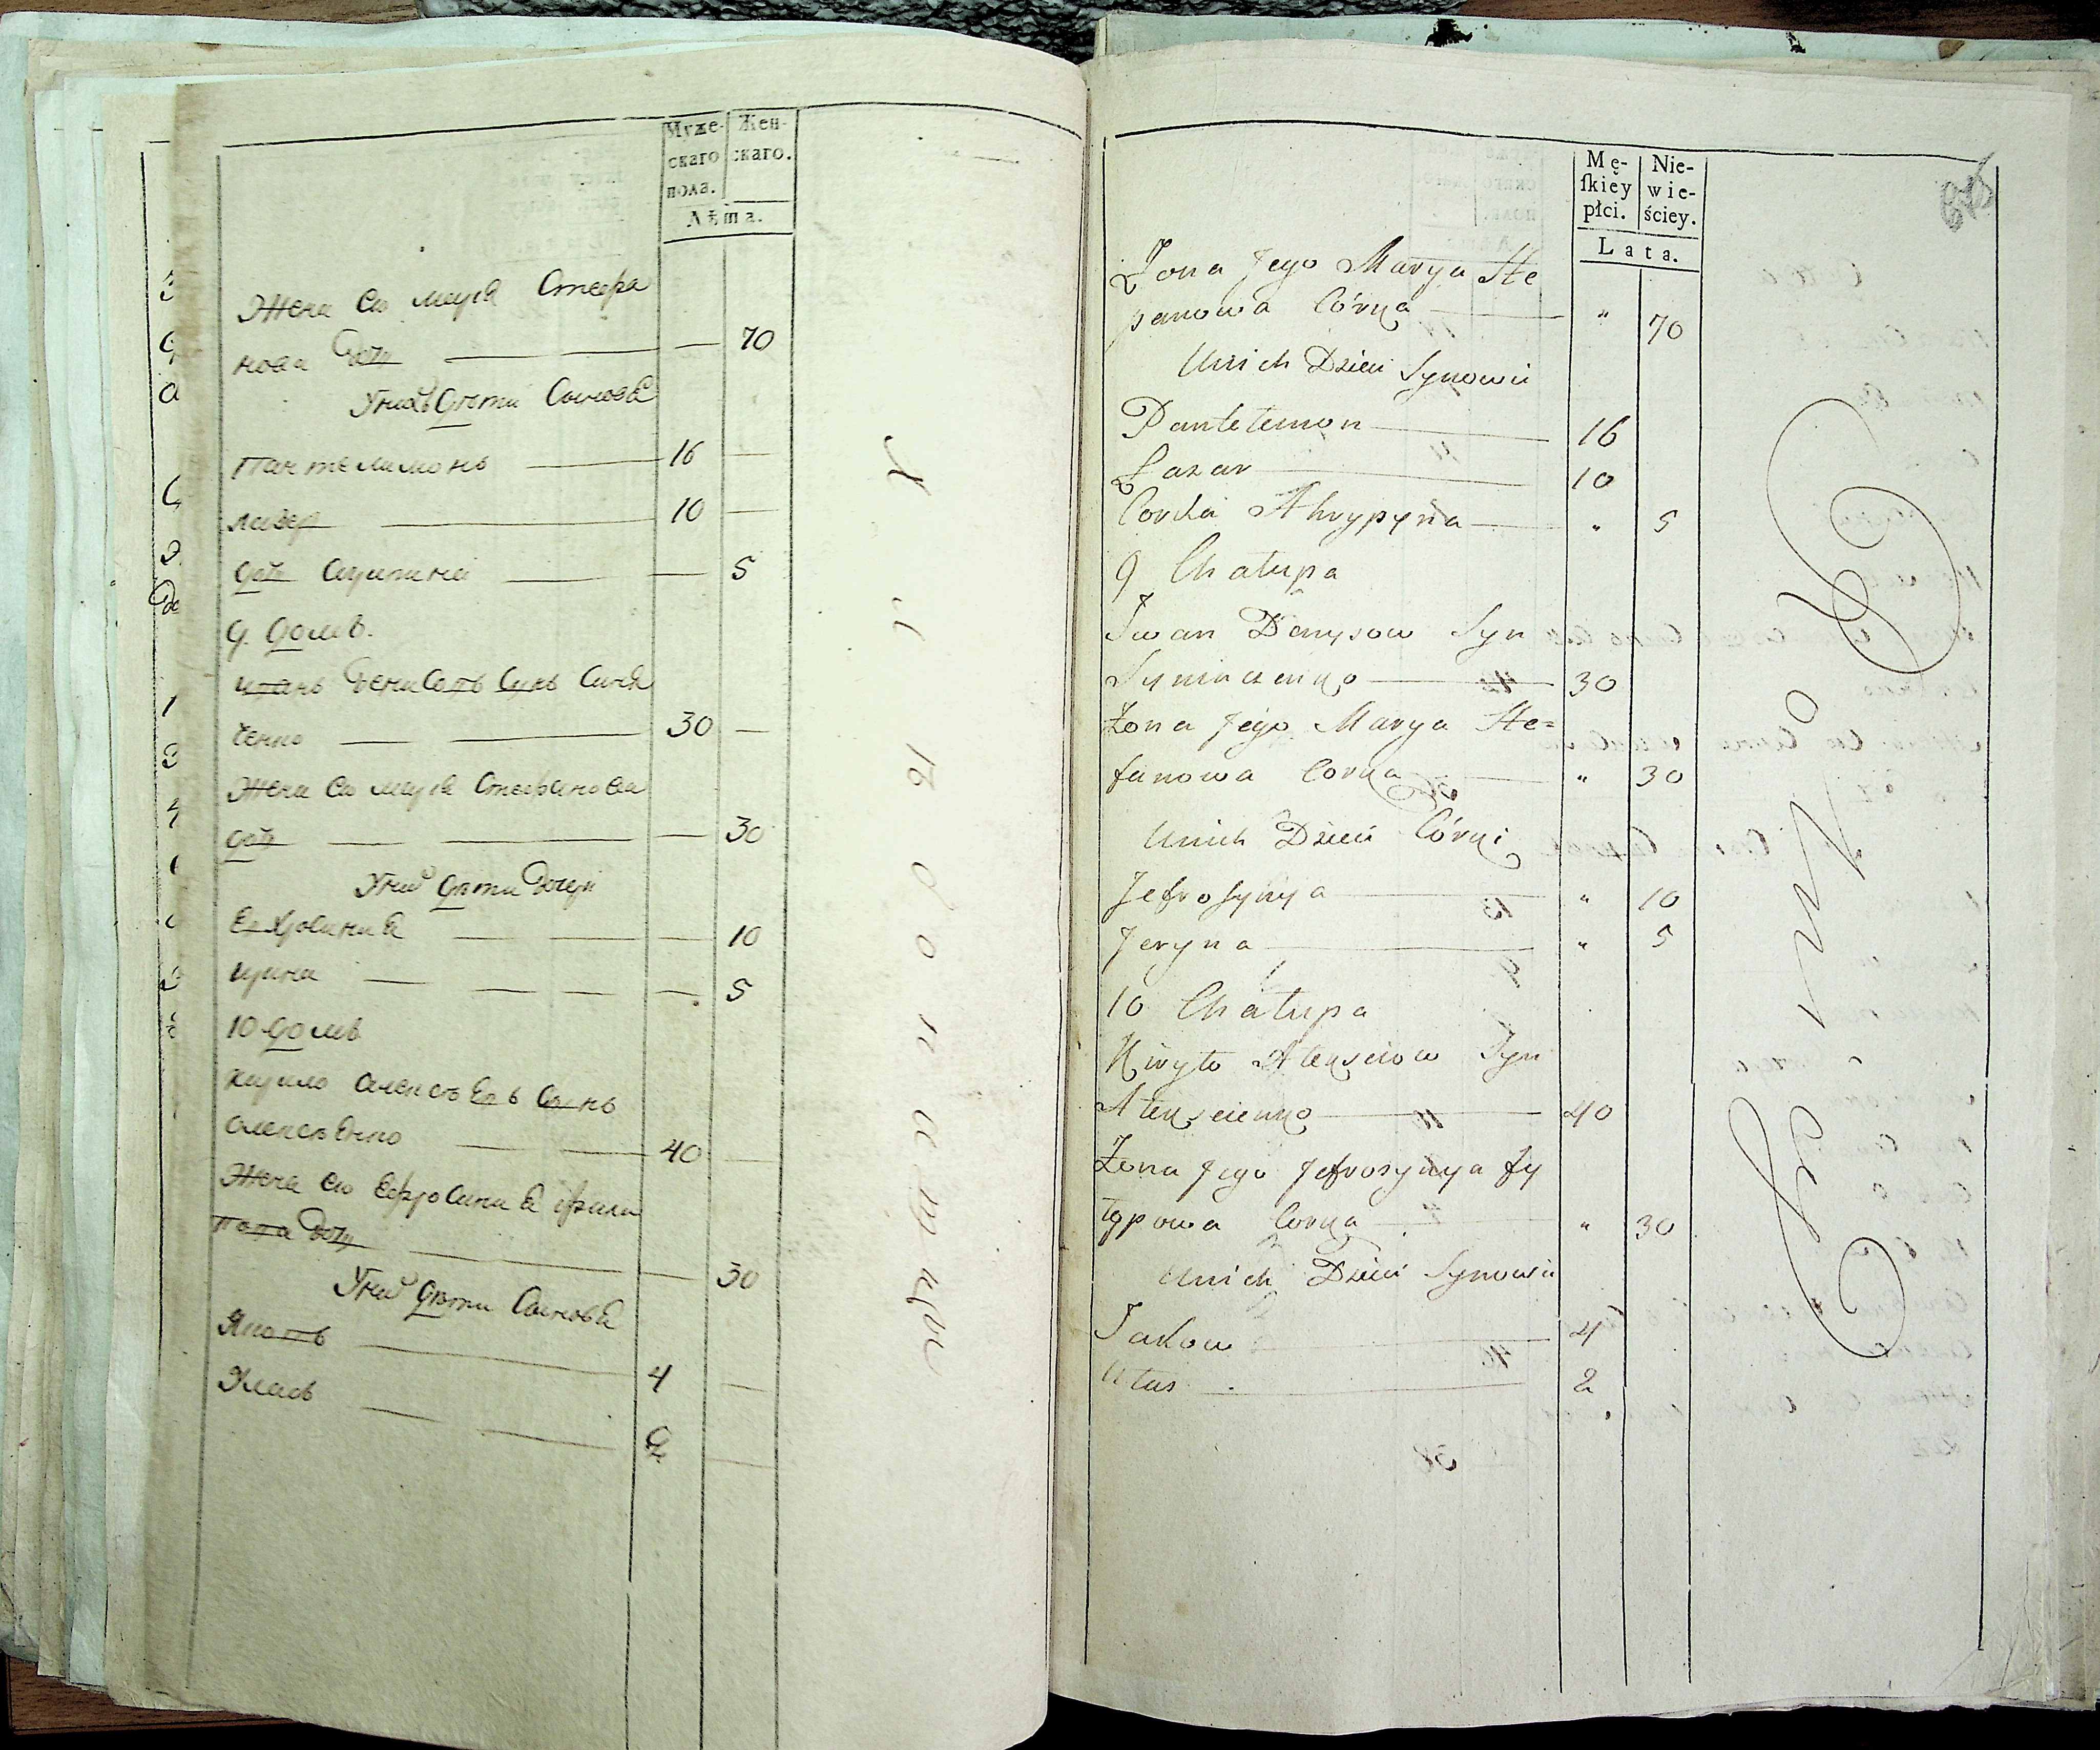 Муже-
скаго
пола.
Жен-
скаго.
Лѣта.
Жена Ео Марья Стефа
нова Дочь 70
У них Дѣти Синовя
Пантелимонъ 16
Лазер 10
Доч Агрипина 5
9. Домъ.
Иванъ Денисовъ Сынъ Сини
ченко 30
Жена Ео Марья Стефанова
Доч 30
У них Дѣти Дочери
Ефросиния 10
Ирина 5
10 Домъ
Кирило Алексѣевъ Сынъ
Алексѣенко 40
Жена Ео Ефросиния Фили
пова Дочь 30
У них Дѣти Синовя
Яковъ 4
Уласъ 2
Mę-
ſkiey
płci.
Nie-
wie-
ściey.
Lata.
Żona Jego Marya Ste
panowa Córka " 70
Unich Dzieci Synowie
Pantelemon 16
Łazar 10
Corka Ahrypyna " 5
9 Chałupa
Iwan Denysow Syn
Syniczenko 30
Żona Jego Marya Ste=
fanowa Corka " 30
Unich Dzieci Córki
Jefrosynya " 10
Jeryna " 5
10 Chałupa
Kiryło Alexeiow Syn
Alexeienko 40
Żona Jego Jefrosynya Fy
lypowa Corka " 30
Unich Dzieci Synowie
Jakow 4
Ułas 2